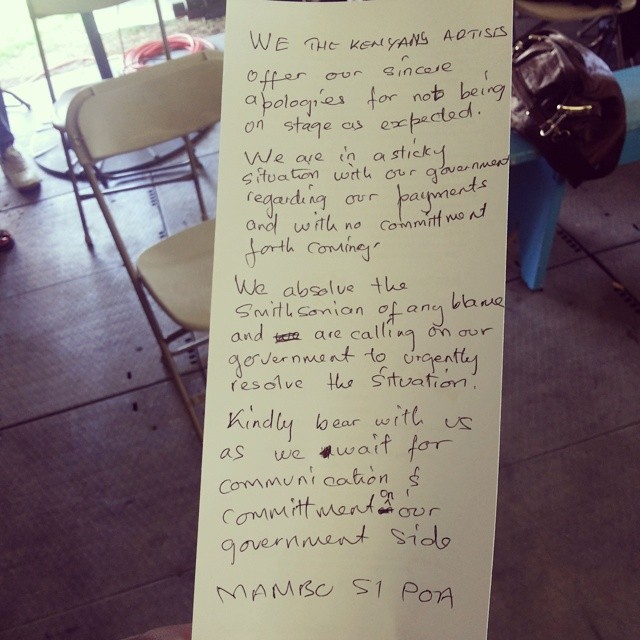 WE THE KENYANS ARTISTS
offer our sincere
apologies for not being
on stage as expected.
We are in a sticky
situation with our government
regarding our payments
and with no committment
forth coming.
We absolve the
Smithsonian of any blame
and are calling on our
government to urgently
resolve the situation.
Kindly bear with us
as we wait for
communication &
committment on our
government side
MAMBO SI POA